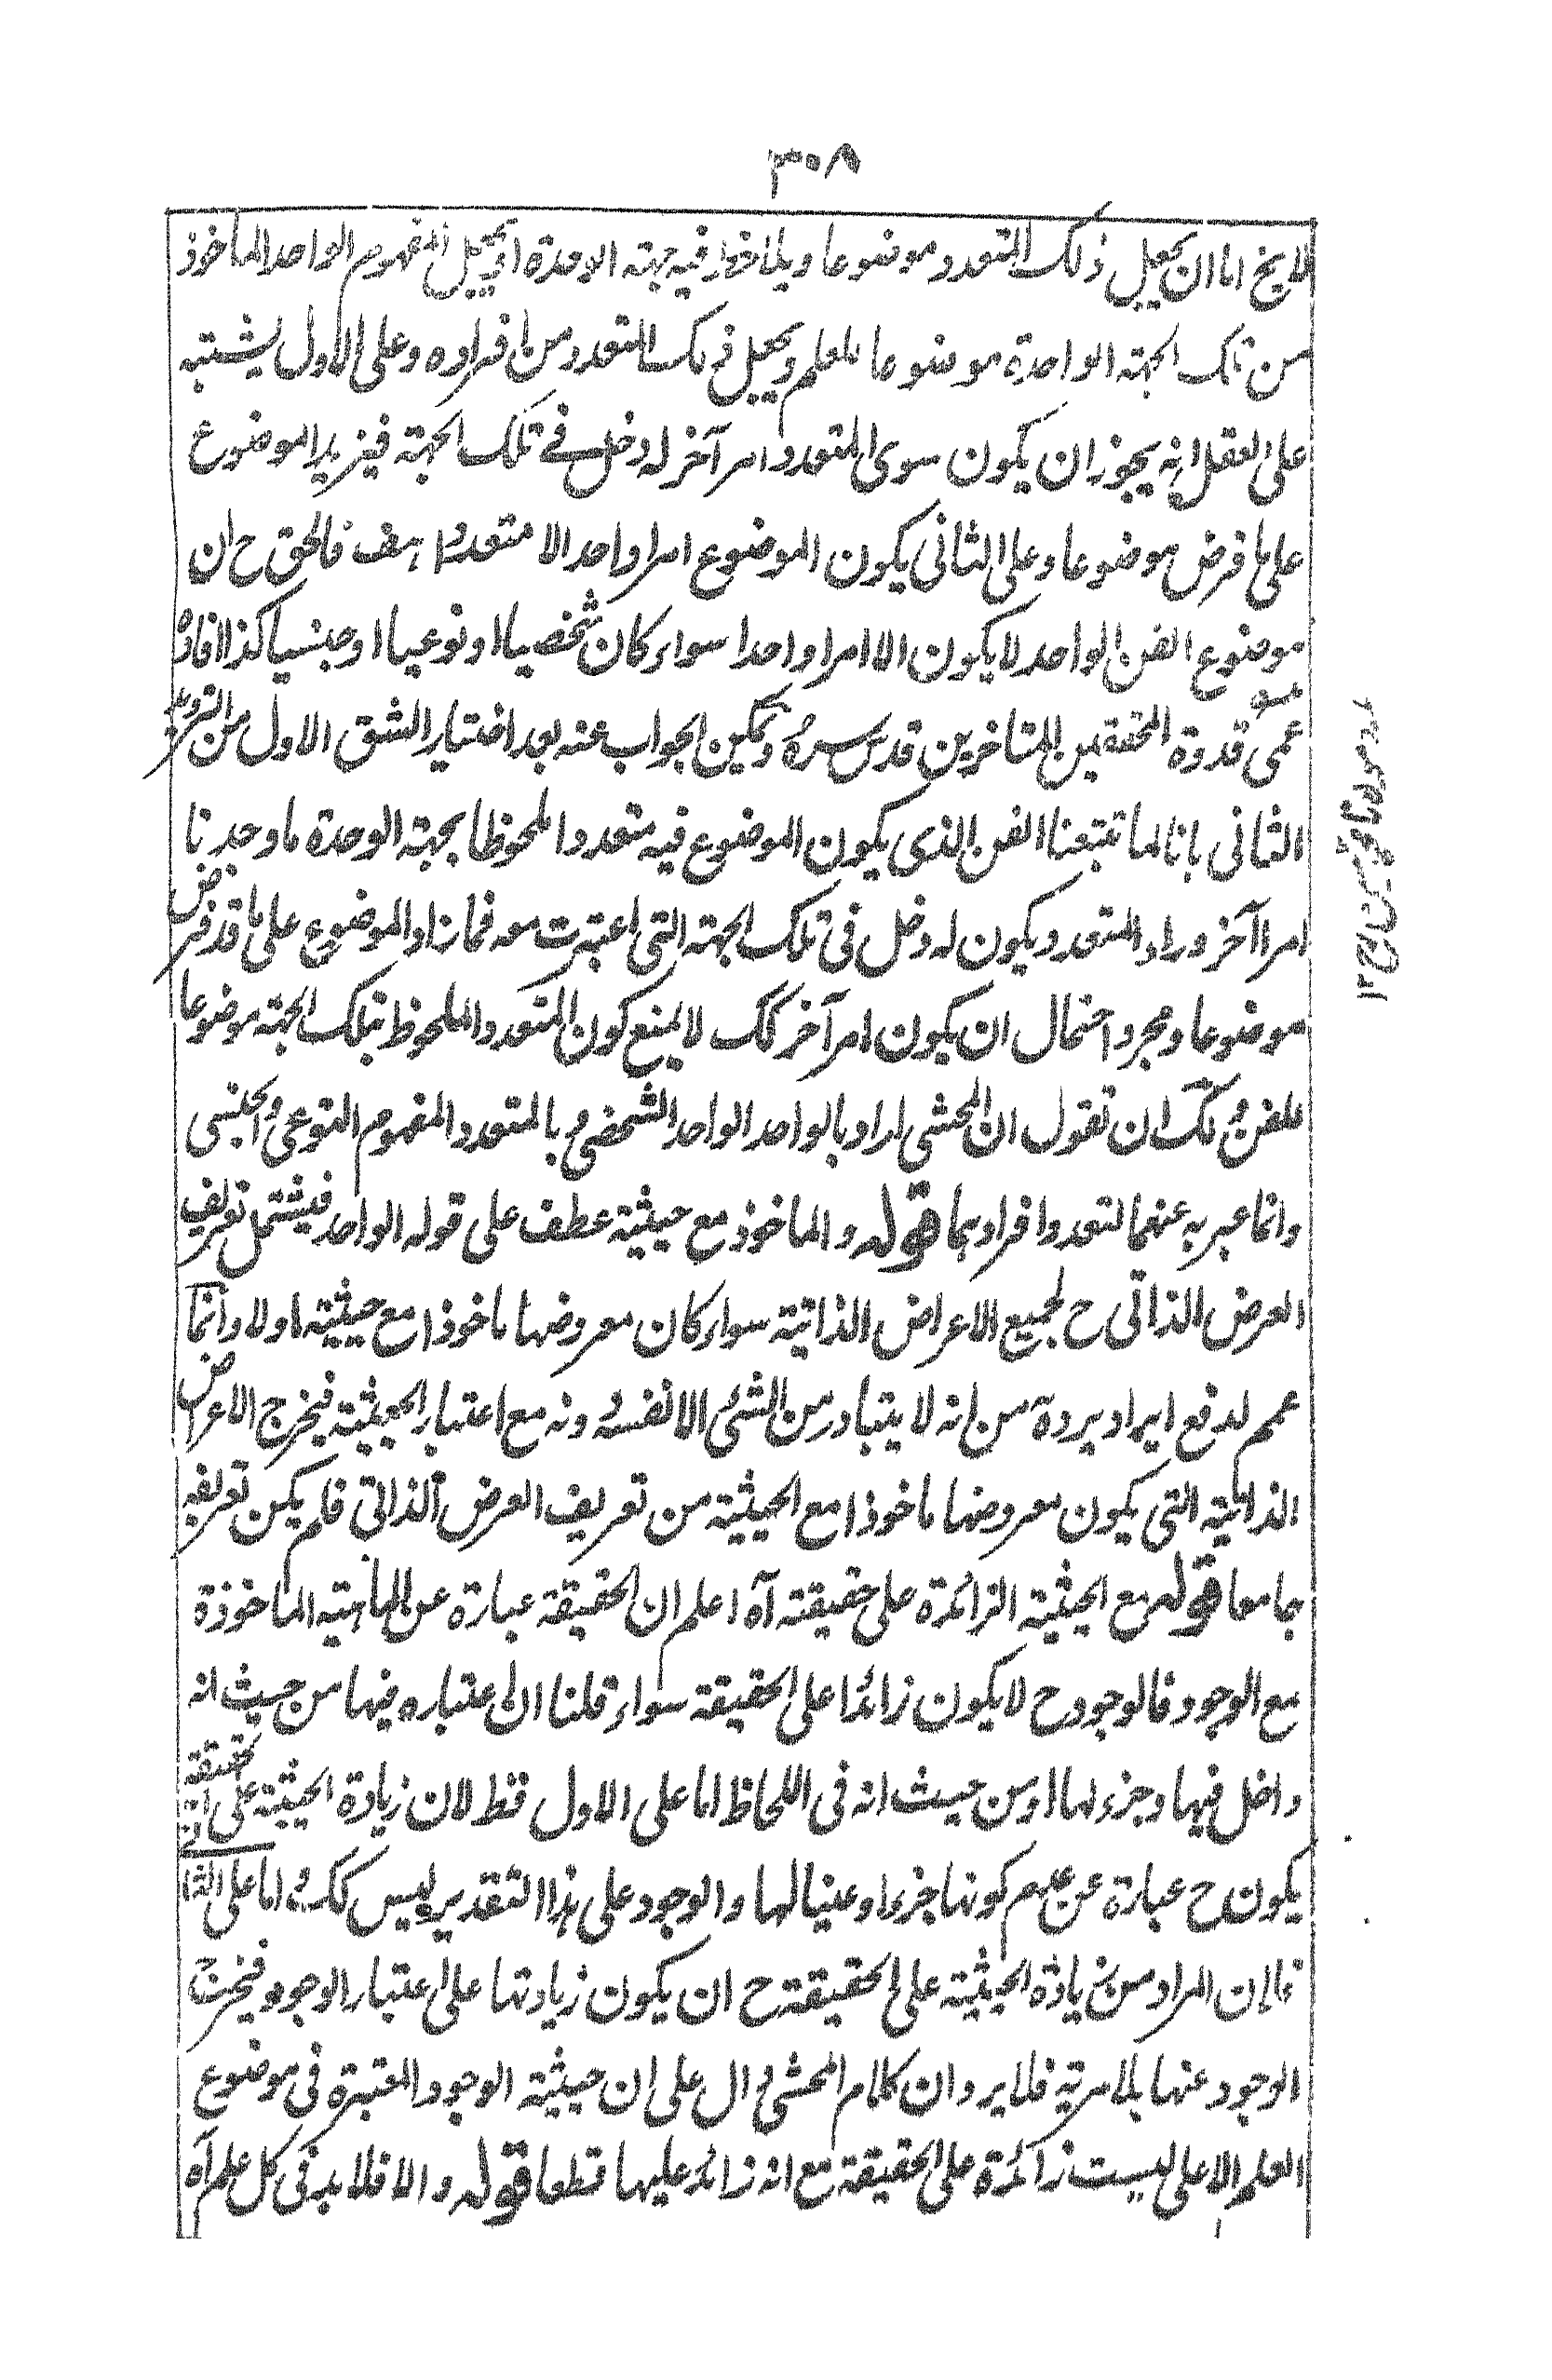 ٣٠٨
لا يخ اما ان يجعل ذلك المتعدد موضوعا ويلاحظ فيه جهته الوحدة او يجعل المفهوم الواحد الماخوذ
من تلك الجهته الواحدة موضوعا للعلم ويجعل ذلك المتعدد من افراده وعلى الاول يشتبه
على العقل انه يجوز ان يكون سوى المتعدد امر آخر له دخل في تلك الجهته فيزيد الموضوع
على ما فرض موضوعا وعلى الثانى يكون الموضوع امرا واحدا لا متعددا هف فالحق ح ان
موضوع الفن الواحد لا يكون الا امرا واحدا سواء كان شخصيا او نوعيا او جنسيا كذا افاده
عمى قدوة المحققين المتاخرين قدس سره ويمكن الجواب عنه بعد اختيار الشق الاول من الترديد
الثانى بانا لما تتبعنا الفن الذى يكون الموضوع فيه متعددا ملحوظا بجهته الوحدة ما وجدنا
امرا آخر وراء المتعدد ويكون له دخل فى تلك الجهته التى اعتبرت معه فما زاد الموضوع على ما قد فرض
موضوعا ومجرد احتمال ان يكون امر آخر كك لا يمنع كون المتعدد الملحوظ بتلك الجهته موضوعا
للفن ولك ان تقول ان المحشى اراد بالواحد الواحد الشخصى وبالمتعدد المفهوم النوعى والجنسى
وانما عبر به عنهما لتعدد افرادهما قوله والماخوذ مع حيثية عطف على قوله الواحد فيشتمل تعريف
العرض الذاتى ح لجميع الاعراض الذاتية سواء كان معروضها ماخوذا مع حيثية اولا وانما
عمم لدفع ايراد يرد من انه لا يتبادر من الشئ الا نفسه دونه مع اعتبار الحيثية فيخرج الاعراض
الذاتية التى يكون معروضها ماخوذا مع الحيثية من تعريف العرض الذاتى فلم يكن تعريفه
جامعا قوله مع الحيثية الزائدة على حقيقته آه اعلم ان الحقيقة عبارة عن الماهيته الماخوذة
مع الوجود فالوجود ح لا يكون زائدا على الحقيقة سواء قلنا ان اعتباره فيها من حيث انه
داخل فيها وجزء لها او من حيث انه فى اللحاظ اما على الاول فقط لان زيادة الحيثية على الحقيقة
يكون ح عبارة عن عدم كونها جزءا وعينا لها والوجود على هذا التقدير ليس كك واما على الثانى
فلان المراد من زيادة الحيثية على الحقيقة ح ان يكون زيادتها على اعتبار الوجود فيخرج
الوجود عنها بلا مرية فلا يرد ان كلام المحشى دال على ان حيثية الوجود المعتبرة فى موضوع
العلم الاعلى ليست زائدة على الحقيقة مع انه زائد عليها قطعا قوله والا فلا بد فى كل علم آه